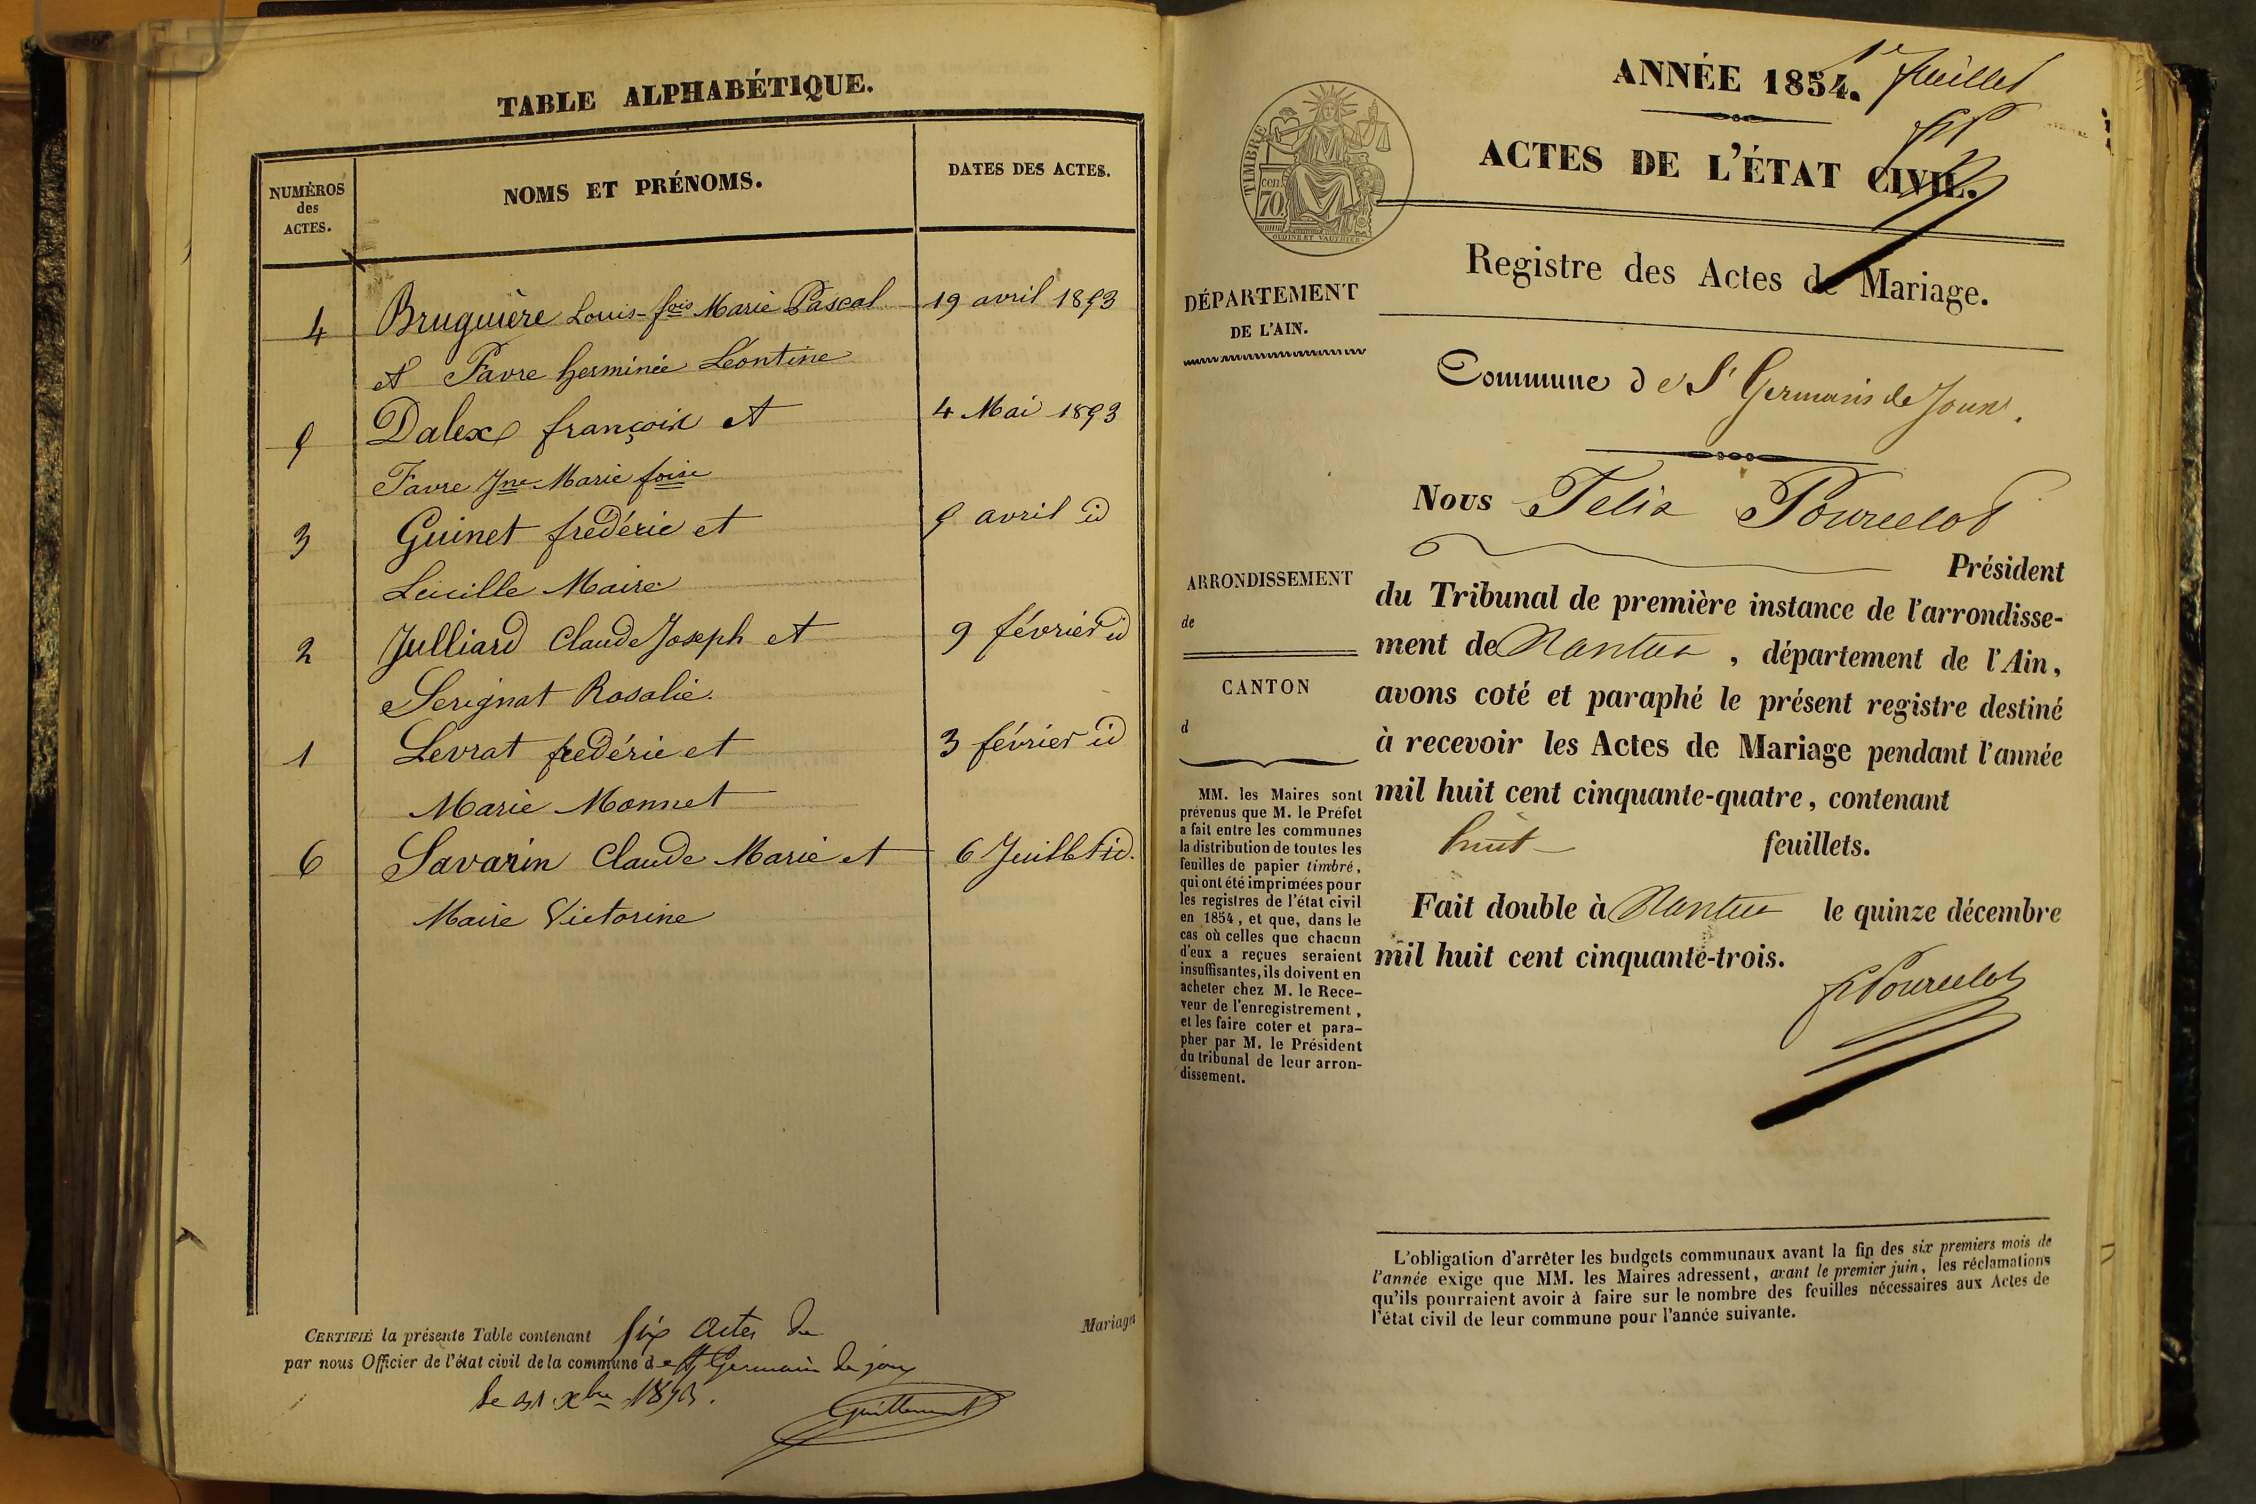 TABLE ALPHABÉTIQUE.
NUMÉROS
des
ACTES.
NOMS ET PRÉNOMS.
DATES DES ACTES.
4 Bruguière Louis-fois Marie Pascal 19 avril 1853
et Favre herminie Léontine
5 Dalex françois et 4 Mai 1853
Favre Jne Marie foise
3 Guinet frédéric et 5 avril id
Lucille Maire
2 Julliard Claude Joseph et 9 février id
Serignat Rosalie.
1 Levrat fredéric et 3 février id
Marie Monnet
6 Savarin Claude Marie et 6 Juillet id.
Maire Victorine
CERTIFIÉ la présente Table contenant six actes de Mariage
par nous Officier de l'état civil de la commune de St Germain de joux
le 31 xbre 1853.
Guillermet
ANNÉE 1854.
1er feuillet
FP
TIMBRE
70 cen.
OUDINE ET VAUTHIER
ACTES DE L'ÉTAT CIVIL.
Registre des Actes de Mariage.
DÉPARTEMENT
DE L'AIN.
Commune de St Germain de Joux.
ARRONDISSEMENT
de
CANTON
d
MM. les Maires sont
prévenus que M. le Préfet
a fait entre les communes
la distribution de toutes les
feuilles de papier timbré,
qui ont été imprimées pour
les registres de l'état civil
en 1854, et que, dans le
cas où celles que chacun
d'eux a reçues seraient
insuffisantes, ils doivent en
acheter chez M. le Rece-
veur de l'enregistrement,
et les faire coter et para-
pher par M. le Président
du tribunal de leur arron-
dissement.
Nous Felix Pourcelot
Président
du Tribunal de première instance de l'arrondisse-
ment de Nantua, département de l'Ain,
avons coté et paraphé le présent registre destiné
à recevoir les Actes de Mariage pendant l'année
mil huit cent cinquante-quatre, contenant
huit feuillets.
Fait double à Nantua le quinze décembre
mil huit cent cinquante-trois.
F Pourcelot
L'obligation d'arrêter les budgets communaux avant la fin des six premiers mois de
l'année exige que MM. les Maires adressent, avant le premier juin, les réclamations
qu'ils pourraient avoir à faire sur le nombre des feuilles nécessaires aux Actes de
l'état civil de leur commune pour l'année suivante.